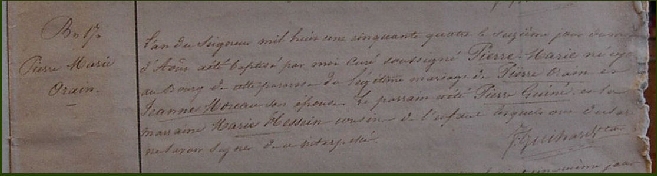 Bp 17e
Pierre Marie
Orain
L'an du Seigneur mil huit cent cinquante quatre le seizième jour du mois
d'Août a été baptisé par moi Curé soussigné Pierre-Marie né
au bourg de cette paroisse du légitime mariage de Pierre Orain et
Jeanne Moreau son épouse. Le parrain a été Pierre Guiné et la
marraine Marie Hessein cousine de l'enfant lesquels ont déclaré
ne savoir signer de ce interpellés